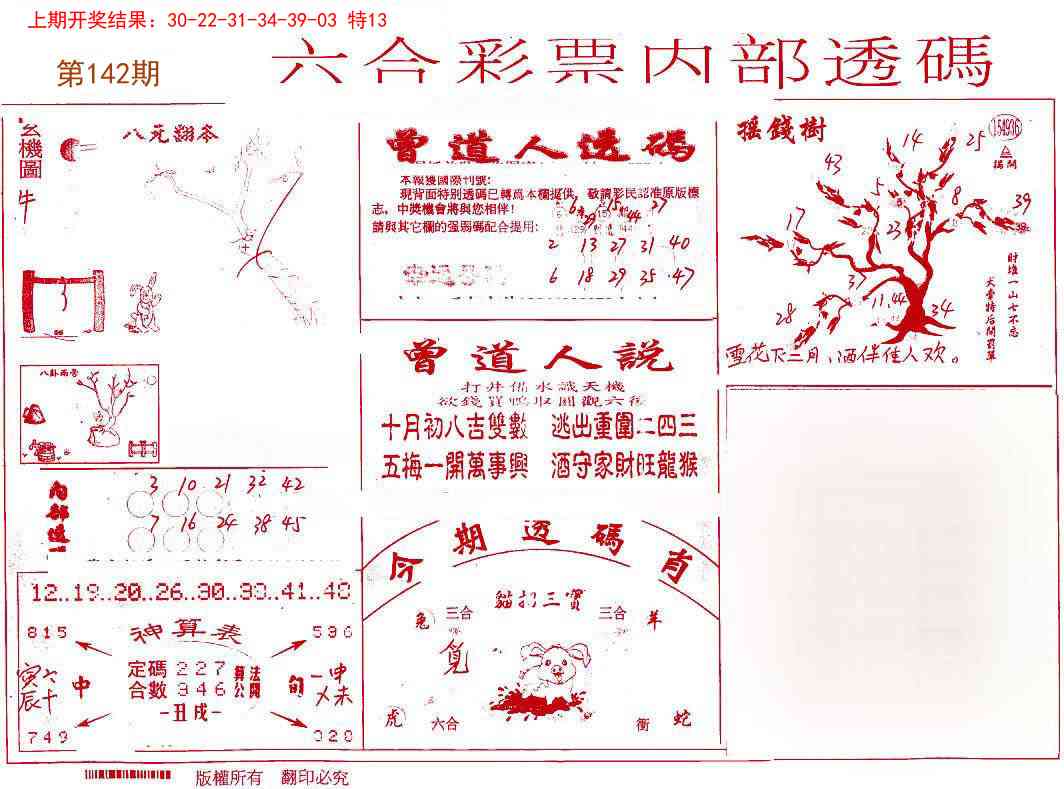 上期开奖结果：30-22-31-34-39-03 特13
第142期
六合彩票内部透碼
玄機圖
牛
八卦兩宮
内部透
3 10 21 32 42
7 16 24 38 45
曾道人透碼
本報獲國際刊號:
現背面特别透碼已轉爲本欄提供，敬請彩民認准原版標
志，中奬機會將與您相伴！
請與其它欄的强弱碼配合提用:
2 13 27 31 40
6 18 29 35 47
曾道人説
打井備水識天機
十月初八吉雙數 逃出重圍二四三
五梅一開萬事興 酒守家財旺龍猴
摇錢樹
154936
揭開
14
25
43
5
8
39
17
23
37
11.44
28
34
財堆一山七不忘
雪花下三月，酒伴佳人欢。
12..19..20..26..30..33..41..48
815
神算表
536
定碼 227
合數 346
算公
法開
-丑戌-
中
旬
寅辰
六十
申未
749
320
今期透碼肖
貓打三寶
兔 三合
三合 羊
虎 六合
衝 蛇
版權所有 翻印必究